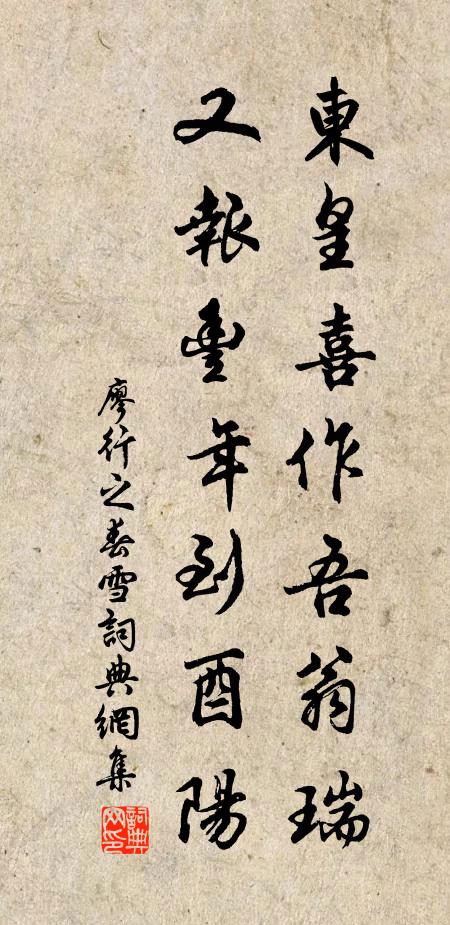 東皇喜作吾翁瑞
又報豐年到酉陽
廖行之春雪詞典網集
詞典網印